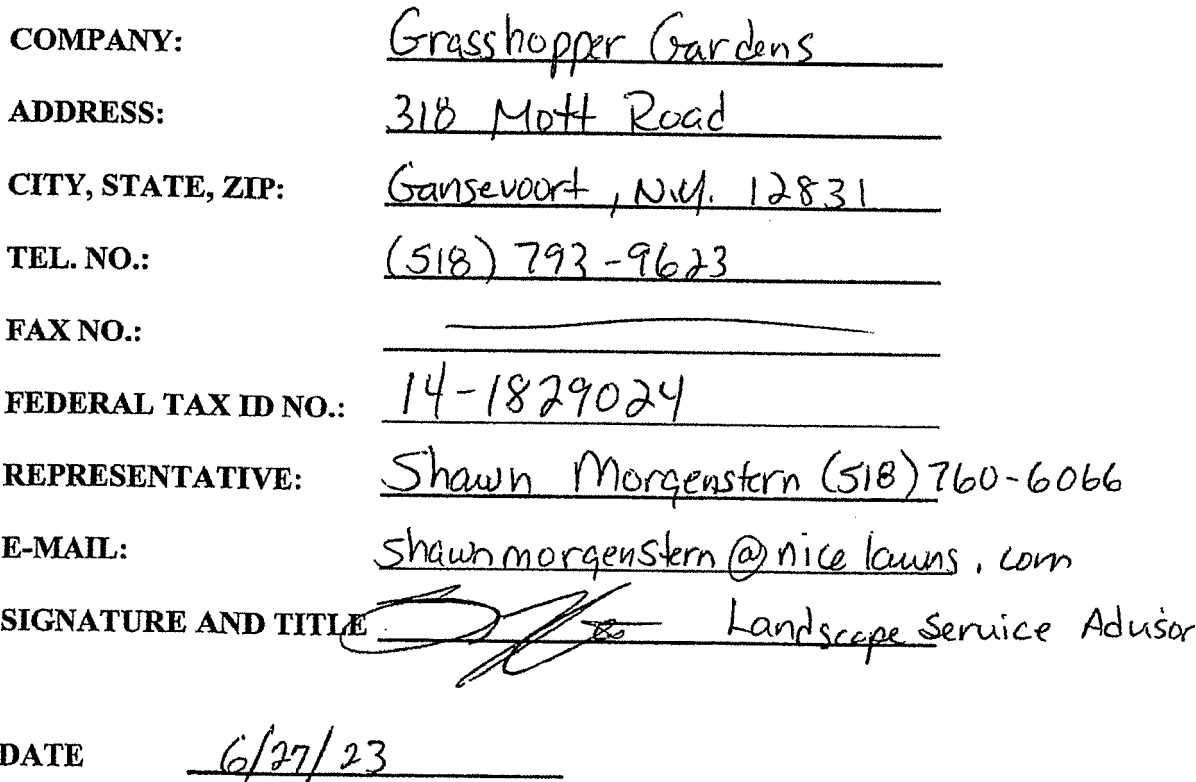 COMPANY: Grasshopper Gardens
ADDRESS: 318 Mott Road
CITY, STATE, ZIP: Gansevoort, N.Y. 12831
TEL. NO.: (518) 793-9623
FAX NO.:
FEDERAL TAX ID NO.: 14-1829024
REPRESENTATIVE: Shawn Morgenstern (518) 760-6066
E-MAIL: shawnmorgenstern@nicelawns.com
SIGNATURE AND TITLE Landscape Service Advisor
DATE 6/27/23